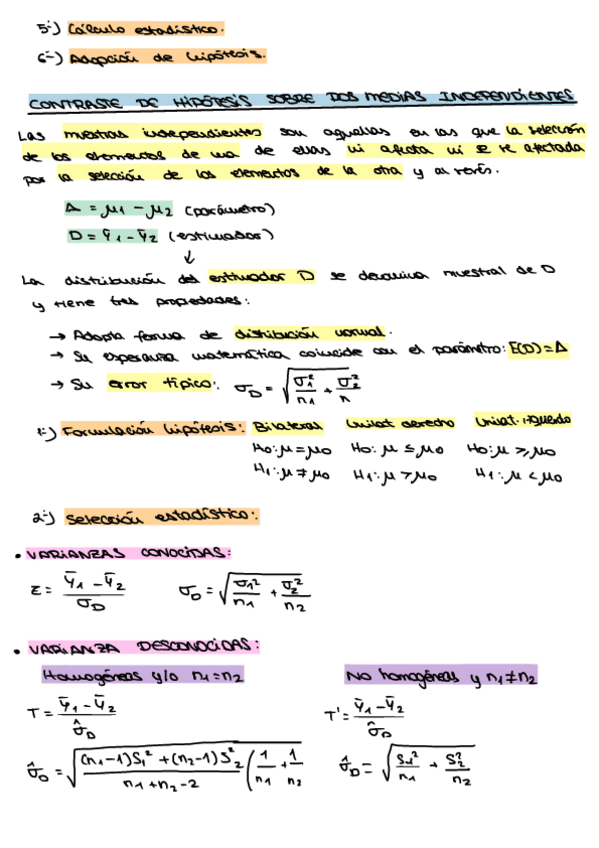 5º-) Cálculo estadístico.
6º-) Adopción de hipótesis.
CONTRASTE DE HIPÓTESIS SOBRE DOS MEDIAS INDEPENDIENTES
Las muestras independientes son aquellas en las que la selección
de los elementos de una de ellas ni afecta ni se ve afectada
por la selección de los elementos de la otra y al revés.
Δ = μ1 - μ2 (parámetro)
D = ȳ1 - ȳ2 (estimador)
↓
La distribución del estimador D se denomina muestral de D
y tiene tres propiedades:
→ Adopta forma de distribución normal.
→ Su esperanza matemática coincide con el parámetro: E(D) = Δ
→ Su error típico: σD = √(σ1²/n1 + σ2²/n)
1º-) Formulación hipótesis: Bilateral Unilat derecho Unilat. izquierdo
H0: μ = μ0 H0: μ ≤ μ0 H0: μ ≥ μ0
H1: μ ≠ μ0 H1: μ > μ0 H1: μ < μ0
2º-) Selección estadístico:
• VARIANZAS CONOCIDAS:
Z = (ȳ1 - ȳ2)/σD σD = √(σ1²/n1 + σ2²/n2)
• VARIANZA DESCONOCIDAS:
Homogéneas y/o n1 = n2 No homogéneas y n1 ≠ n2
T = (ȳ1 - ȳ2)/σ̂D T' = (ȳ1 - ȳ2)/σ̂D
σ̂D = √((n1-1)S1² + (n2-1)S2²)/(n1 + n2 - 2) (1/n1 + 1/n2 σ̂D = √(S1²/n1 + S2²/n2)